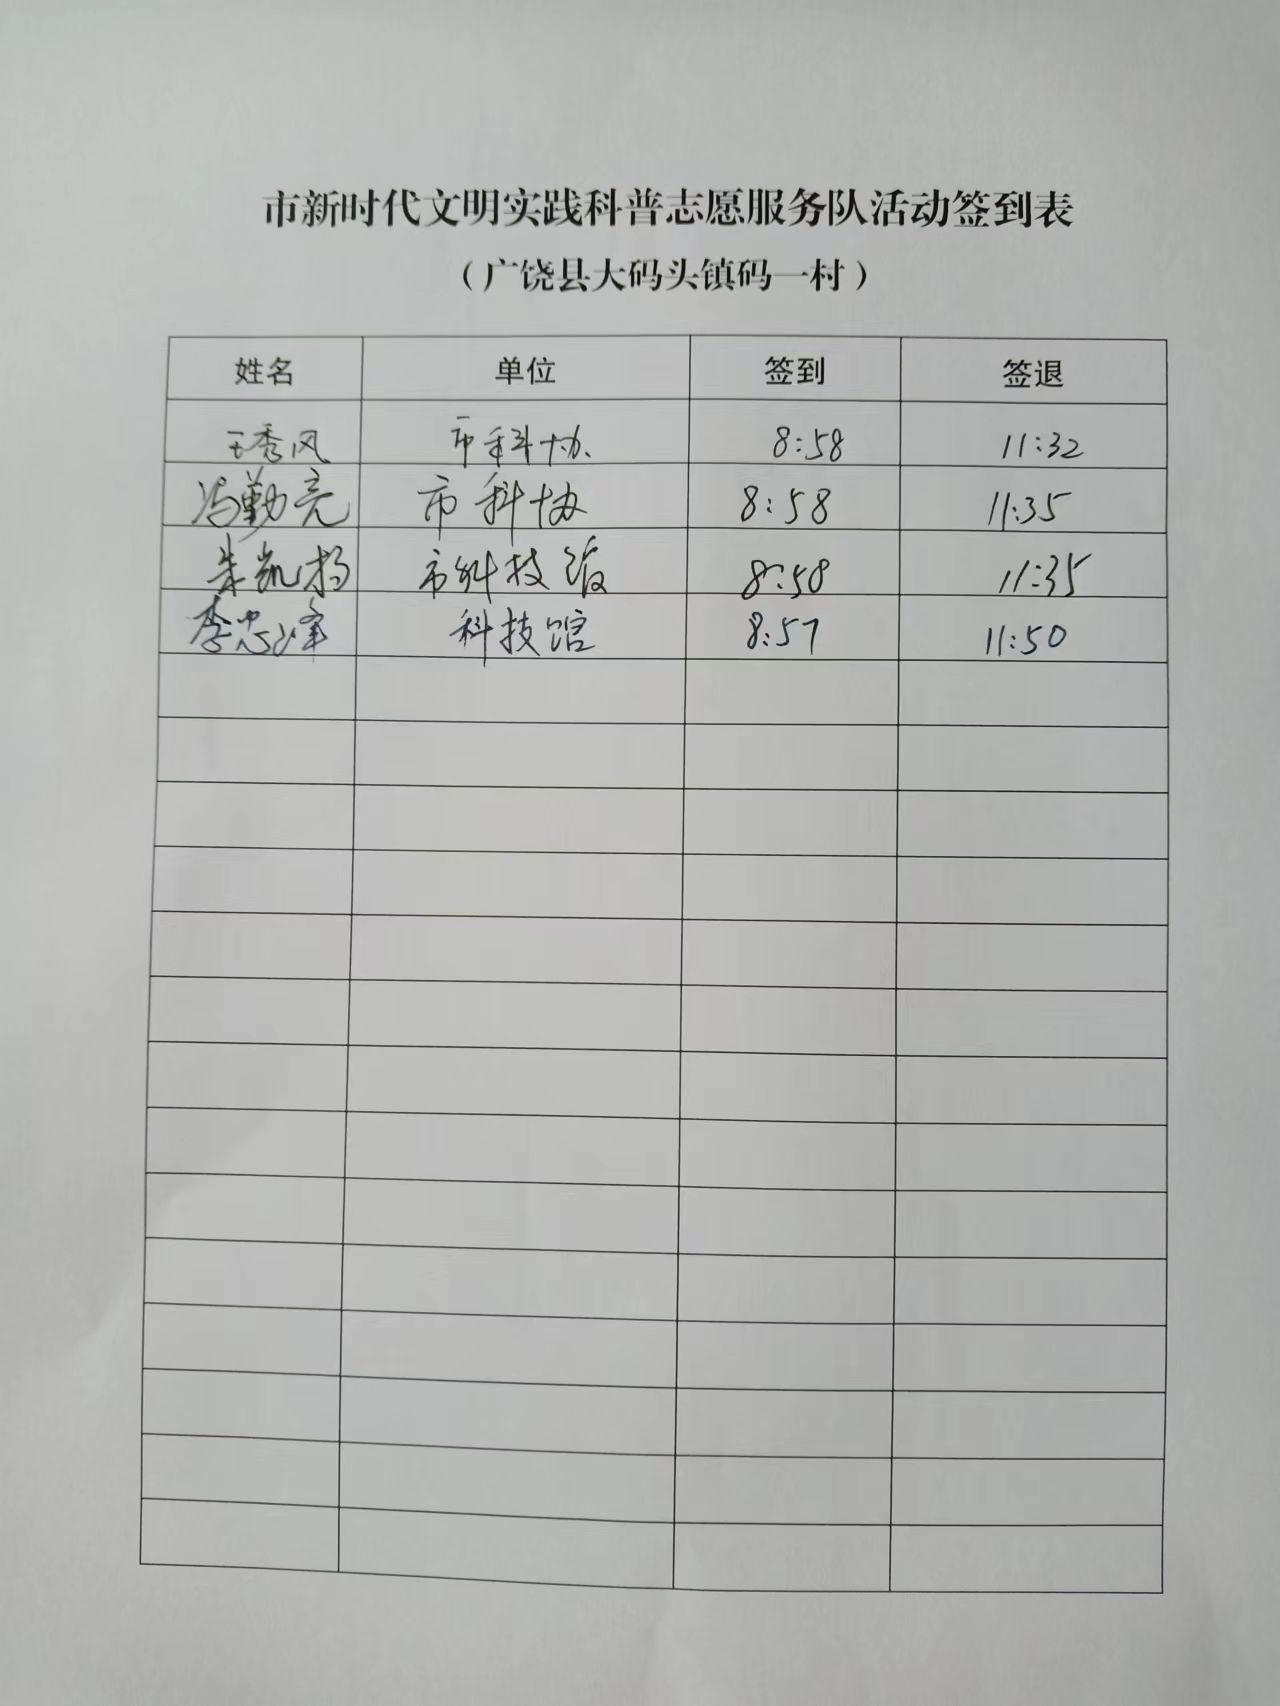 市新时代文明实践科普志愿服务队活动签到表
（广饶县大码头镇码一村）
姓名 单位 签到 签退
王秀风 市科协 8:58 11:32
冯勤亮 市科协 8:58 11:35
朱凯杨 市科技馆 8:58 11:35
李忠峰 科技馆 8:57 11:50